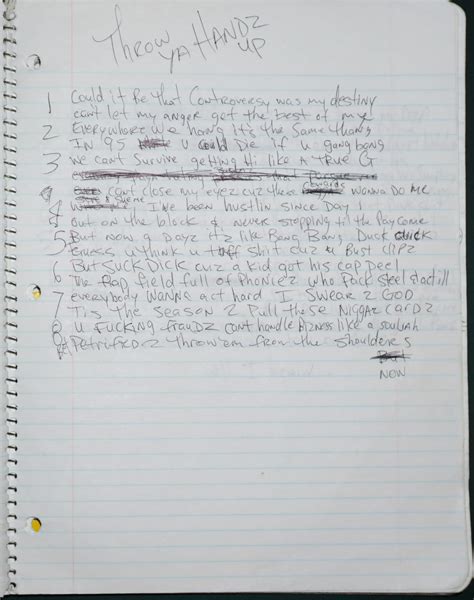 Throw
Ya Handz
Up
1 Could it Be that Controversy was my destiny
cant let my anger get the best of my
2 Everywhere we hang it's the same thang
In 95 u could Die if u gang bang
3 we cant Survive getting Hi like a True G
cant close my eyez cuz these wanna do me
4 I've been hustlin since Day 1
out on the block & never stopping til the pay come
5 But now a dayz itz like Bang Bang Duck Duck
Guess u think u tuff shit cuz u Bust clipz
6 But Suck Dick cuz a kid got his cap peel
6 The Rap field full of Phoniez who Pack steel &
7 everybody wanna act hard I swear 2 GOD
Tis the season 2 Pull these Niggaz cardz
8 u Fucking fraudz cant handle Bizness like a
8 Petrifiedz Throw'em from the Shoulders
NOW